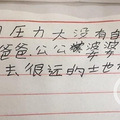 压力大没有
爸爸、公公婆婆
去很远的士也